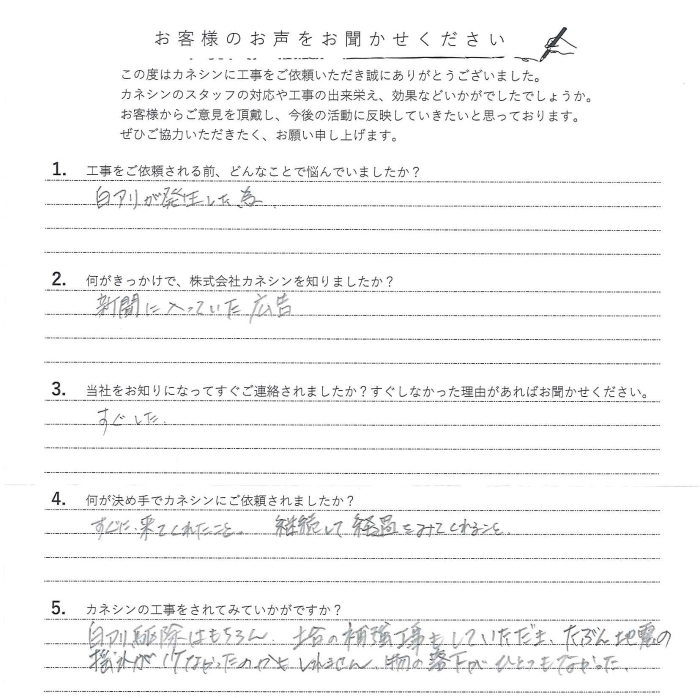 お客様のお声をお聞かせください
この度はカネシンに工事をご依頼いただき誠にありがとうございました。
カネシンのスタッフの対応や工事の出来栄え、効果などいかがでしたでしょうか。
お客様からご意見を頂戴し、今後の活動に反映していきたいと思っております。
ぜひご協力いただきたく、お願い申し上げます。
1. 工事をご依頼される前、どんなことで悩んでいましたか？
白アリが発生した為
2. 何がきっかけで、株式会社カネシンを知りましたか？
新聞に入っていた広告
3. 当社をお知りになってすぐご連絡されましたか？すぐしなかった理由があればお聞かせください。
すぐした.
4. 何が決め手でカネシンにご依頼されましたか？
すぐに来てくれたこと。 継続して経過をみてくれること.
5. カネシンの工事をされてみていかがですか？
白アリ駆除はもちろん、土台の補強工事もしていただき、たぶん地震の
揺れが なかったのかもしれません、物の落下がひとつもなかった.